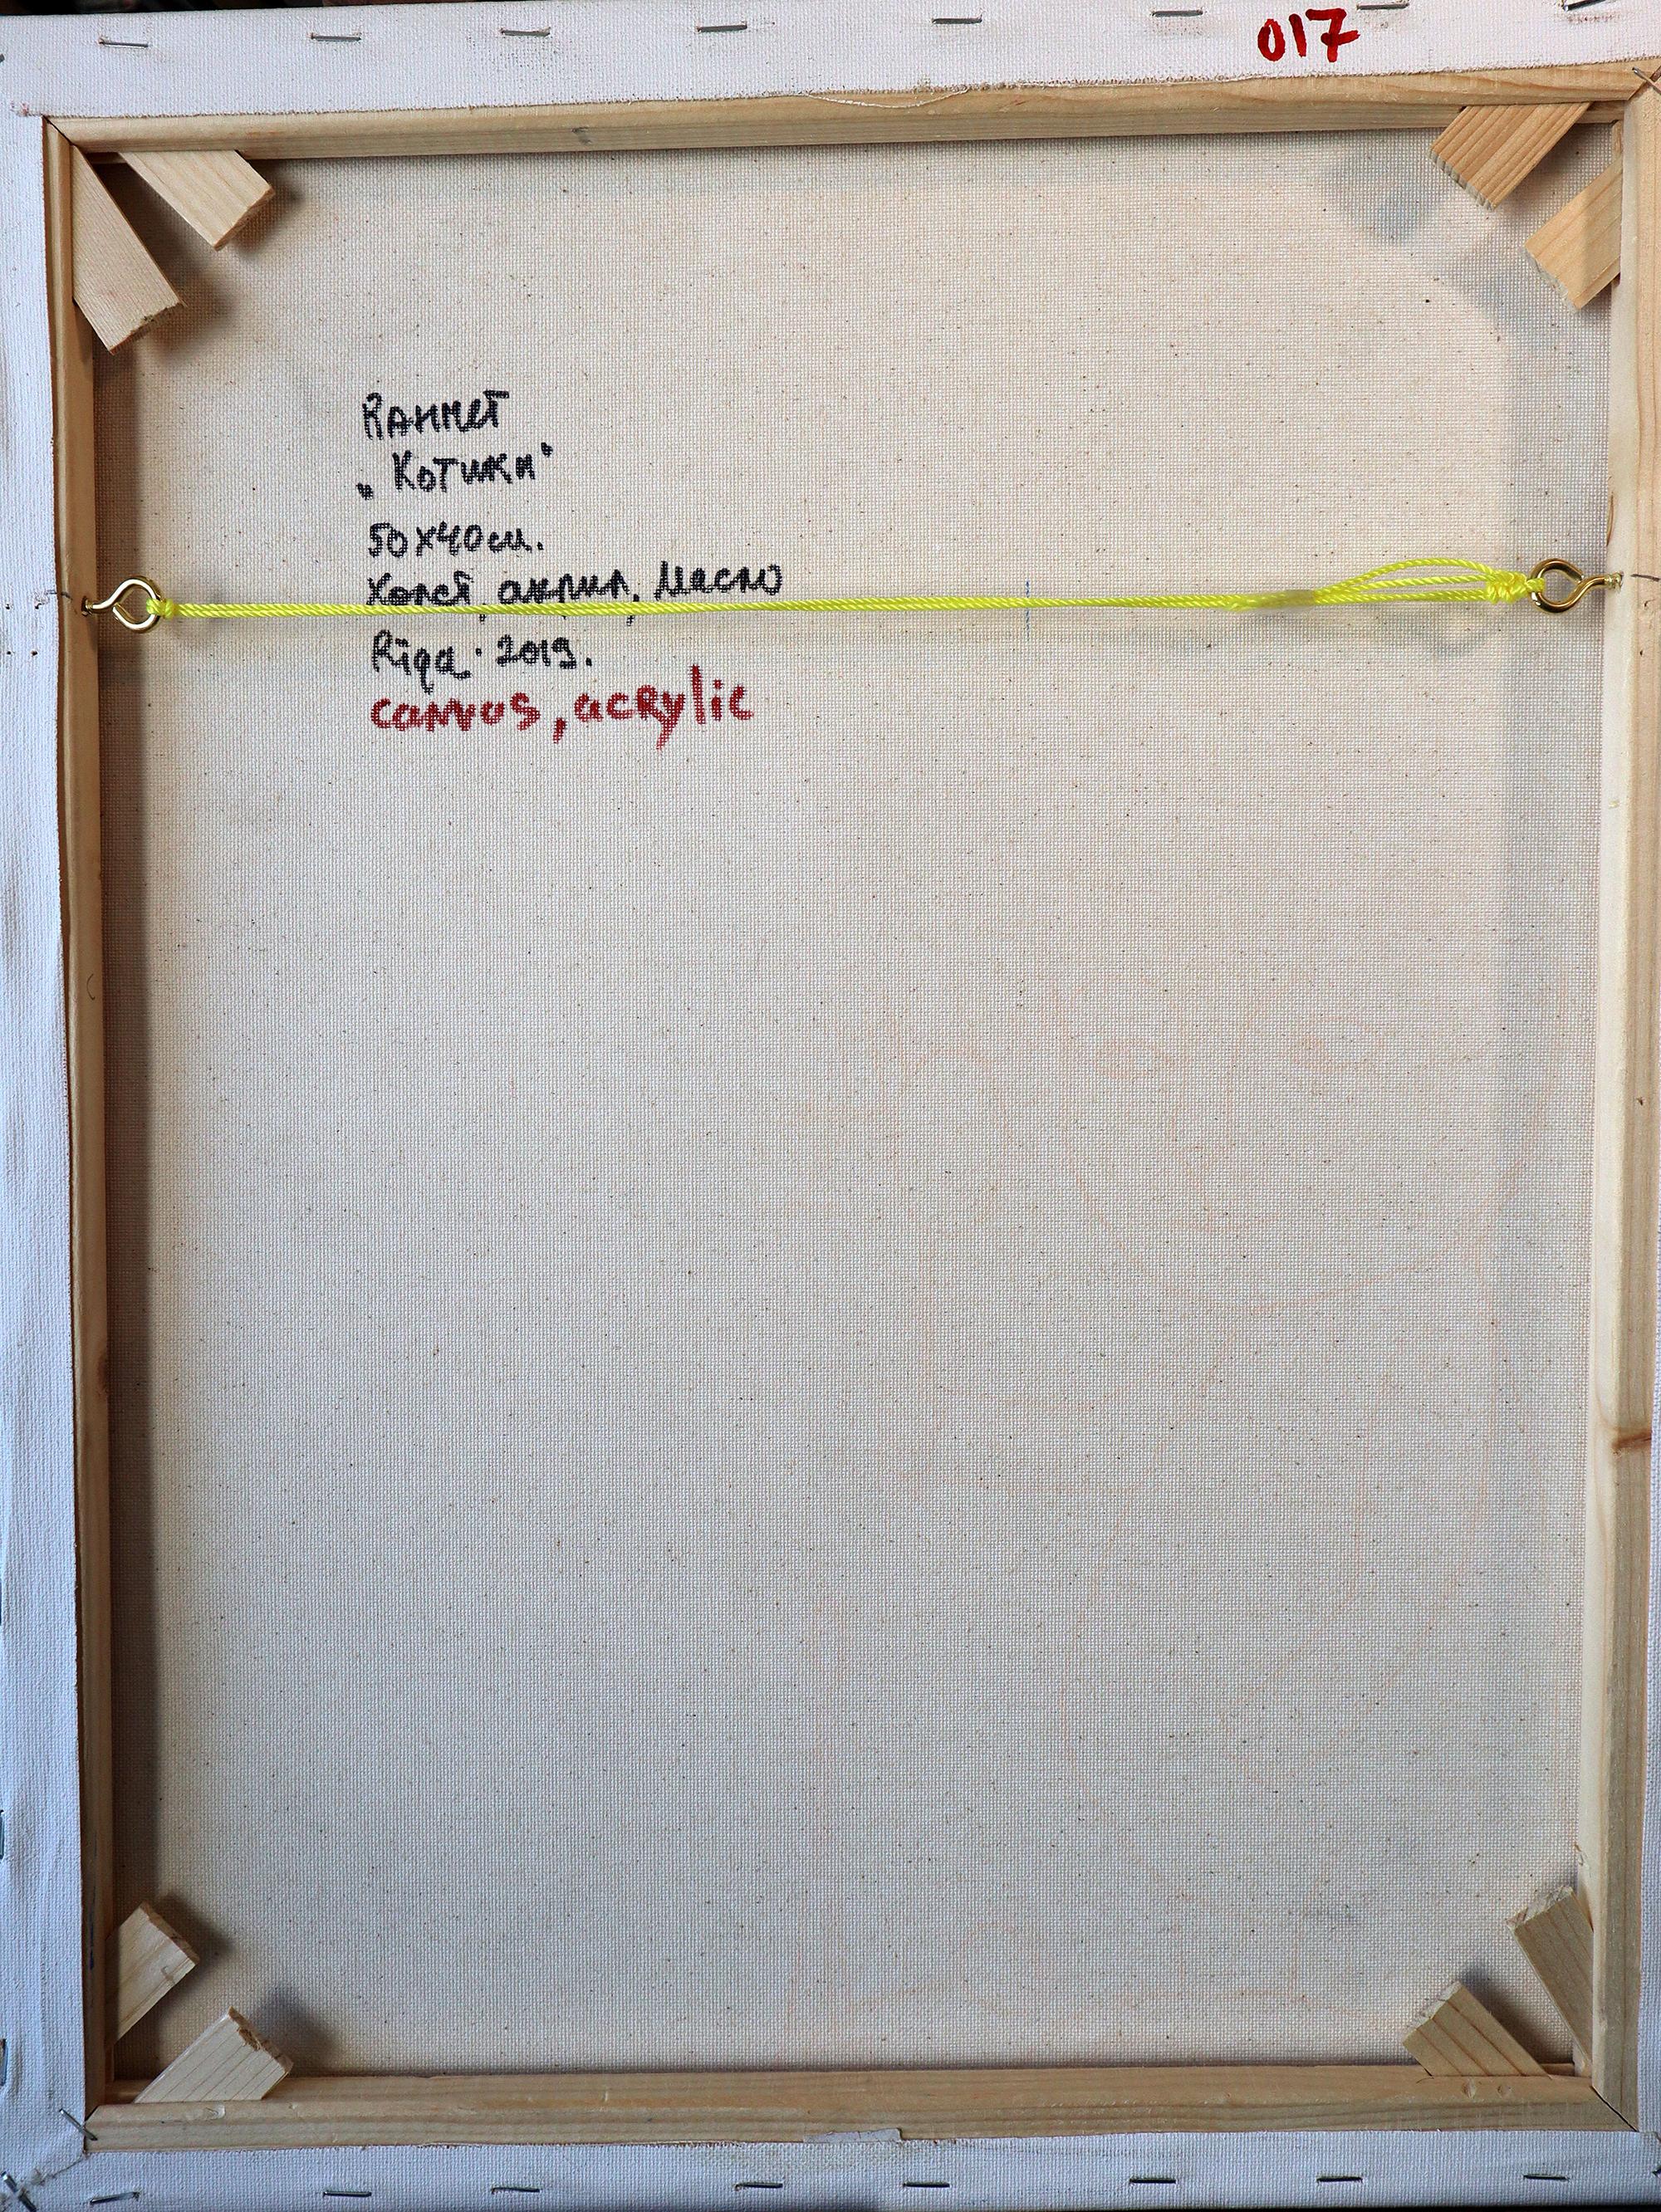 017
Rаннет
„Котики"
50x40см.
Холст, акрил, масло
Rīga. 2019.
canvas, acrylic